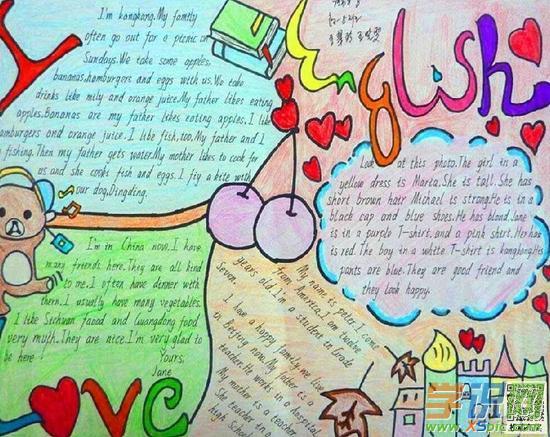 I'm kangkong.My family
often go out for a picnic on
Sundays.We take some apples,
bananas,hamburgers and eggs with us.We take
drinks like mily and orange juice.My father likes eating
apples.Bananas are my father likes eating apples.I like
hamburgers and orange juice.I like fish,too,My father and I
fishing.Then my father gets water.My mother likes to cook for
us and she cooks fish and eggs.I fiy a kite with
our dog,Dingding.
English
Look at this photo.The girl in a
yellow dress is Maria.She is tall.She has
short brown hair Michael is strong.He is in a
black cap and blue shoes.He has blond.Jane
is in a purple T-shirt.and a pink shirt.Her hair
is red.The boy in a white T-shirt is kangkong.His
pants are blue.They are good friend and
they look happy.
I'm in China now.I have
many friends here.They are all kind
to me.I often have dinner with
them.I usually have many vegetables.
I like Sichuan faood and Guangdong food
very myth.They are nice.I'm very glad to
be here!
Yours,
Jane
My name is peter.I come
from America.I am twelve
years old.I'm a student in Grade
Seven.
I have a happy family.we live
in Beijing now.My father is a
teacher.He works in a hospital
My mother is a
She teacher in
high School
Y
ove
学识网
www.XSpic.com